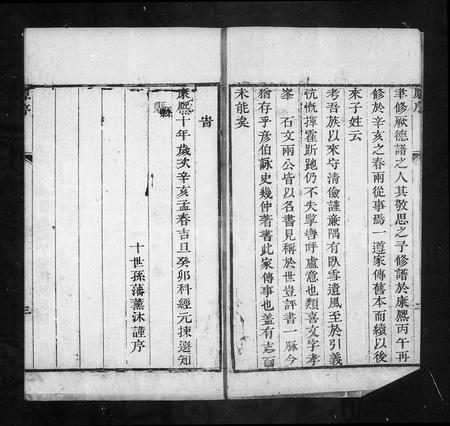 聿修厥德譜之人其敬思之予修譜於康熙丙午再
修於辛亥之春兩從事焉一遵家傳舊本而續以後
來子姓云
考吾族以來守清儉謹廉隅有臥雪遺風至於引義
忼慨揮霍跅跑仍不失擊轡呼盧意也類喜文字孝
峯 石文兩公皆以名書見稱於世豈評書一脉今
猶存乎彥伯詠史幾仲著書此家傳事也蓋有志而
未能矣
旹
康熙十年歲次辛亥孟春吉旦癸卯科經元揀選知
縣
十世孫藩薰沐謹序